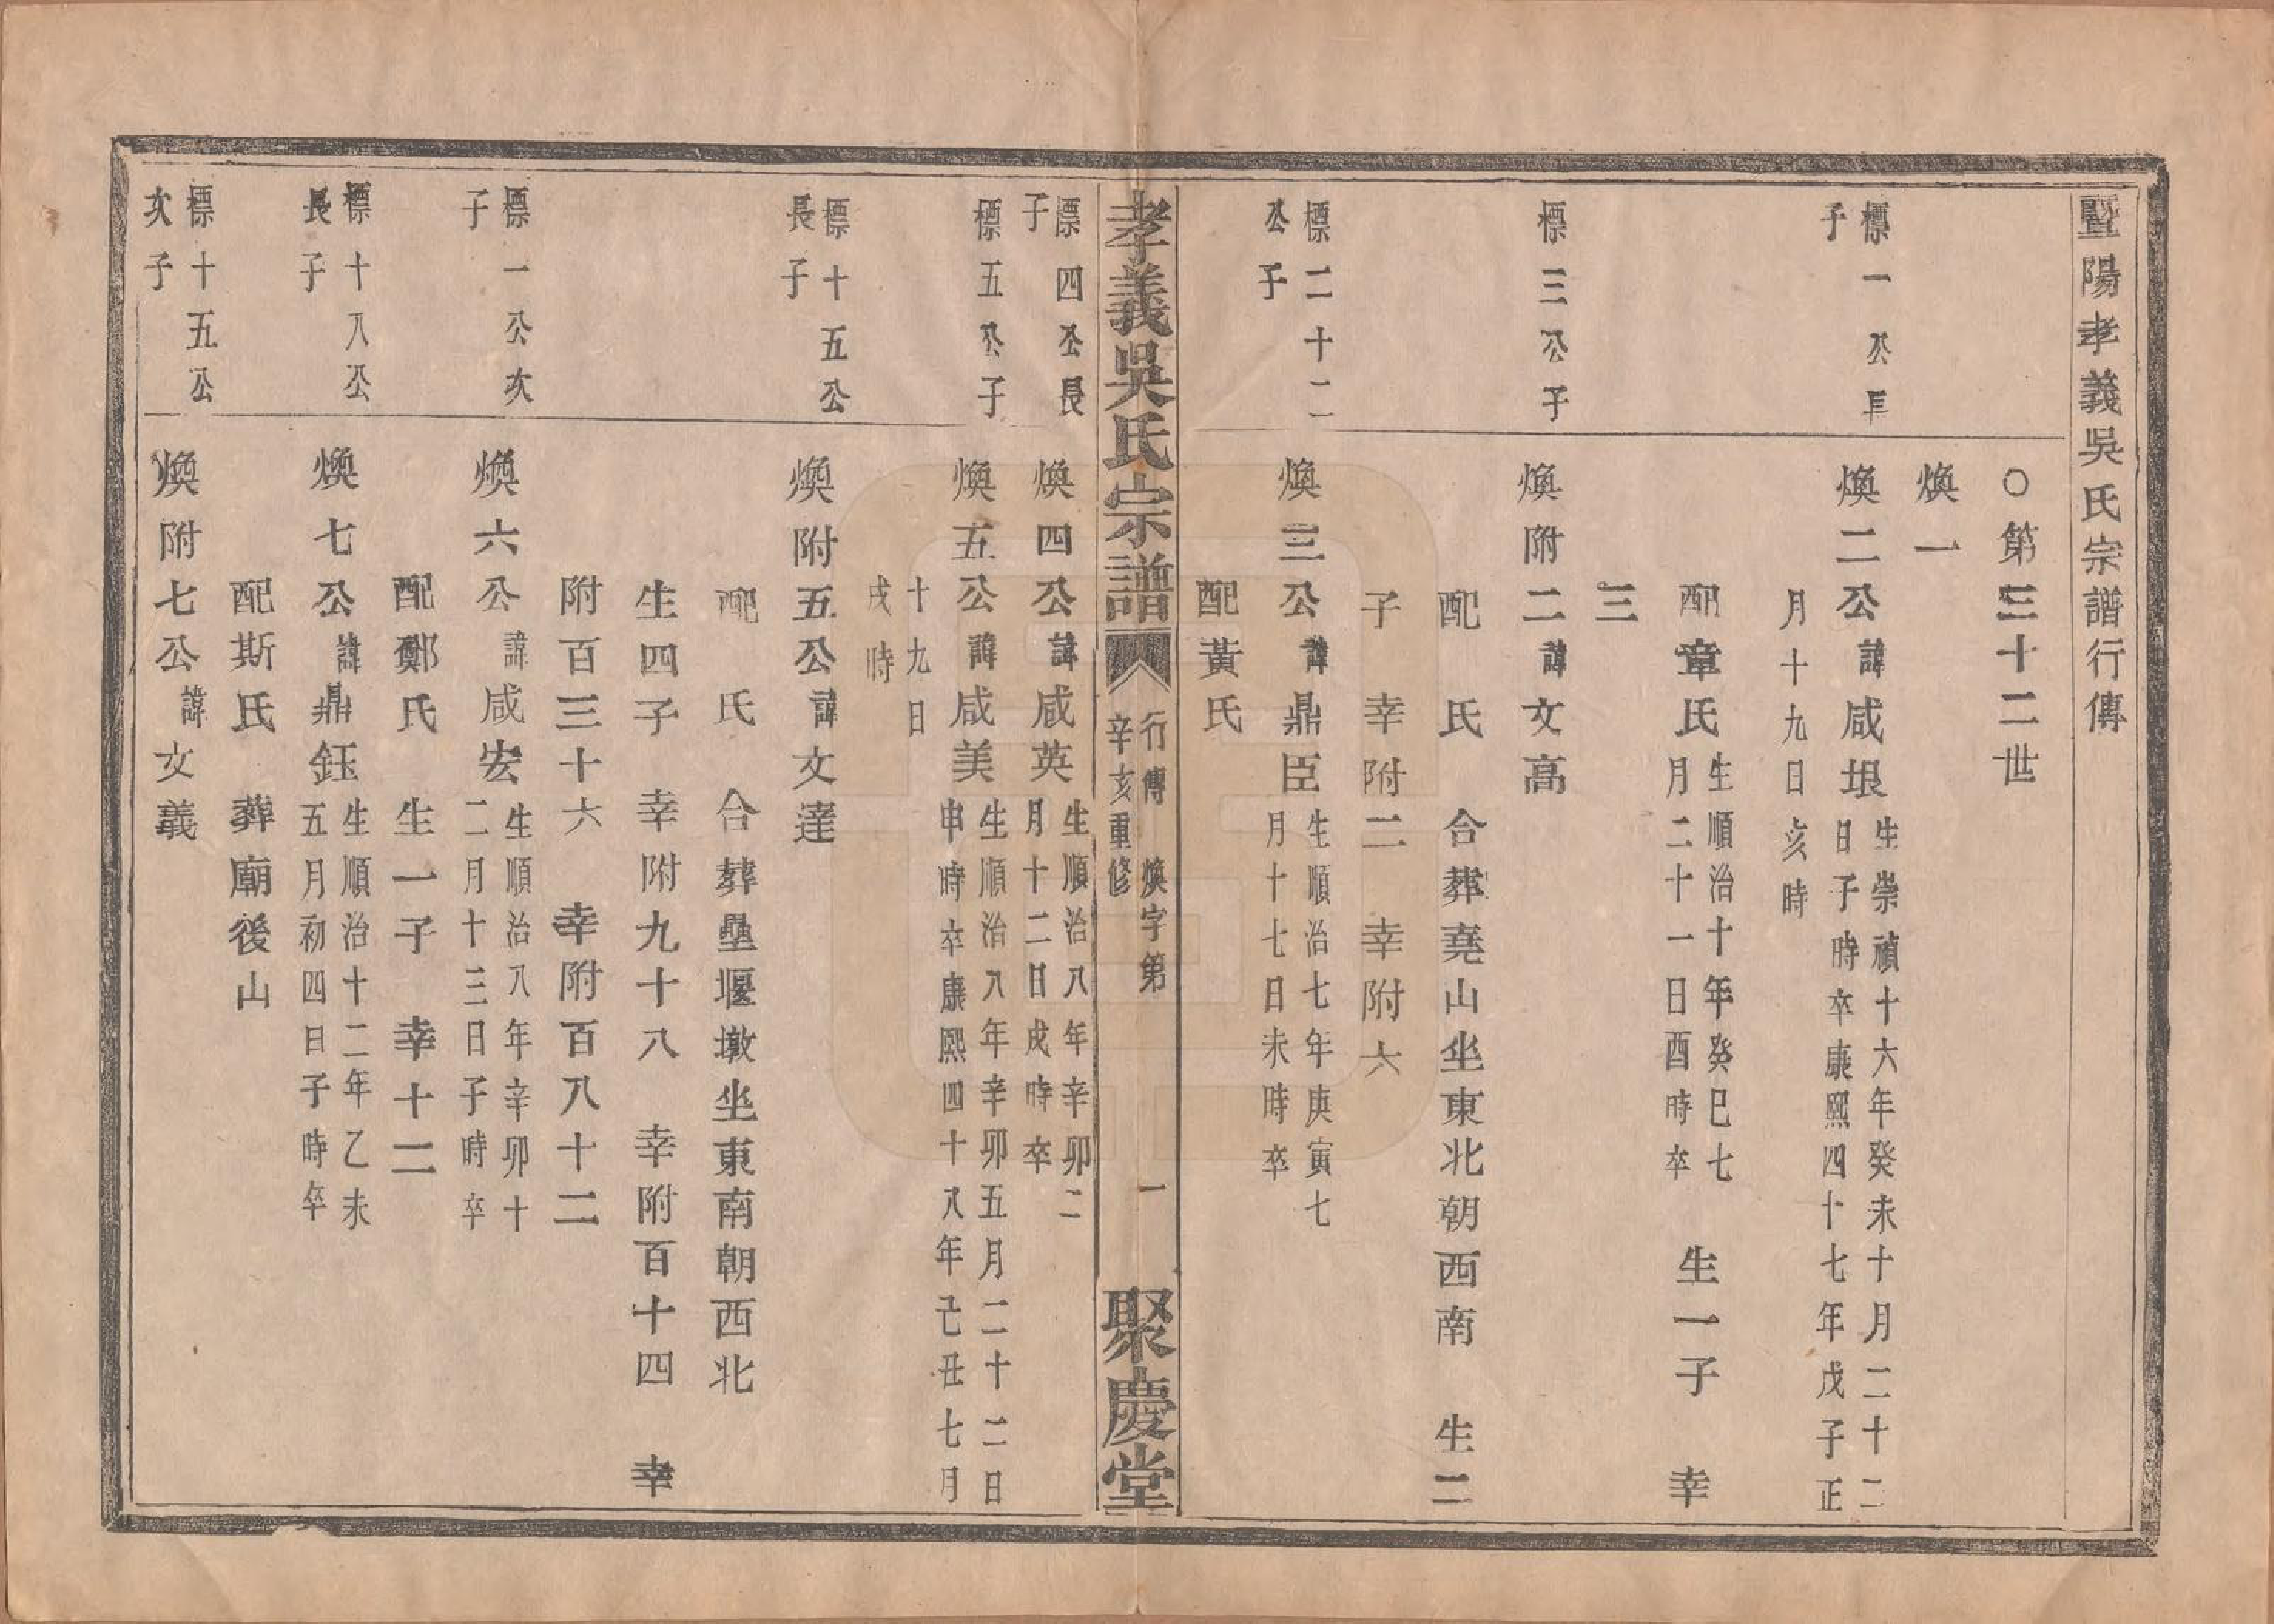 暨陽孝義吳氏宗譜行傳
○第三十二世
煥一
標一公長
子
煥二公諱咸垠
生崇禎十六年癸未十月二十二
日子時卒康熙四十七年戊子正
月十九日亥時
配章氏
生順治十年癸巳七
月二十一日酉時卒
生一子 幸
三
標三公子
煥附二諱文高
配 氏 合葬堯山坐東北朝西南 生二
子 幸附二 幸附六
標二十二
公子
煥三公諱鼎臣
生順治七年庚寅七
月十七日未時卒
配黃氏
孝義吳氏宗譜
行傳 煥字第 一
辛亥重修
聚慶堂
標四公長
子
煥四公諱咸英
生順治八年辛卯二
月十二日戌時卒
標五公子
煥五公諱咸美
生順治八年辛卯五月二十二日
申時卒康熙四十八年己丑七月
十九日
戌時
標十五公
長子
煥附五公諱文達
配 氏 合葬壘堰墩坐東南朝西北
生四子 幸附九十八 幸附百十四 幸
附百三十六 幸附百八十二
標一公次
子
煥六公諱咸宏
生順治八年辛卯十
二月十三日子時卒
配鄭氏 生一子 幸十二
標十八公
長子
煥七公諱鼎鈺
生順治十二年乙未
五月初四日子時卒
配斯氏 葬廟後山
標十五公
次子
煥附七公諱文義